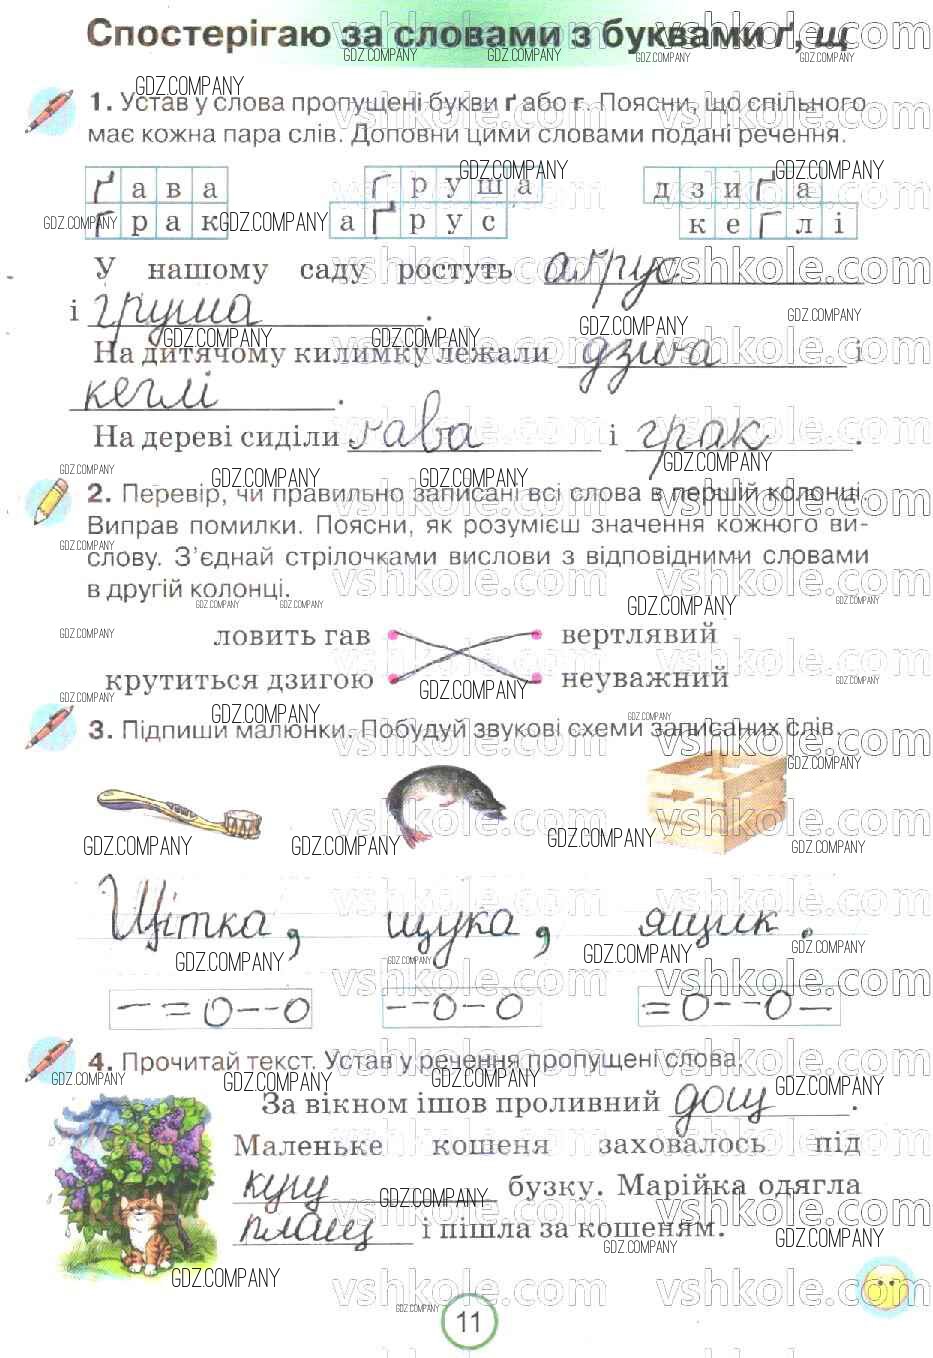 Спостерігаю за словами з буквами ґ, щ
1. Устав у слова пропущені букви ґ або г. Поясни, що спільного
має кожна пара слів. Доповни цими словами подані речення.
ґава груша дзиґа
ґрак аґрус кеглі
У нашому саду ростуть аґрус
і груша.
На дитячому килимку лежали дзиґа і
кеглі.
На дереві сиділи ґава і грак.
2. Перевір, чи правильно записані всі слова в першій колонці.
Виправ помилки. Поясни, як розумієш значення кожного ви-
слову. З’єднай стрілочками вислови з відповідними словами
в другій колонці.
ловить гав вертлявий
крутиться дзигою неуважний
3. Підпиши малюнки. Побудуй звукові схеми записаних слів.
Щітка, щука, ящик.
4. Прочитай текст. Устав у речення пропущені слова.
За вікном ішов проливний дощ.
Маленьке кошеня заховалось під
кущ бузку. Марійка одягла
плащ і пішла за кошеням.
11
GDZ.COMPANY
vshkole.com